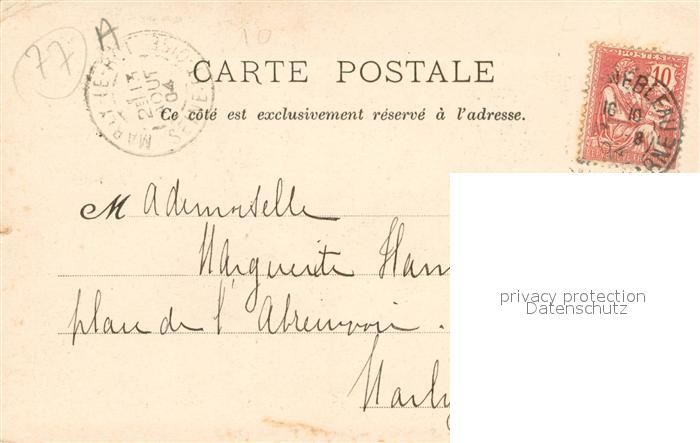 77 A
10
CARTE POSTALE
Ce côté est exclusivement réservé à l'adresse.
POSTES
10
MARLY-LE-ROI
SEINE-ET-OISE
2E 11 5
AOUT
04
EBLEAU
16 10
8
RNE
Mademoiselle
Marguerite Ham
place de l'Abreuvoir.
Marly
privacy protection
Datenschutz